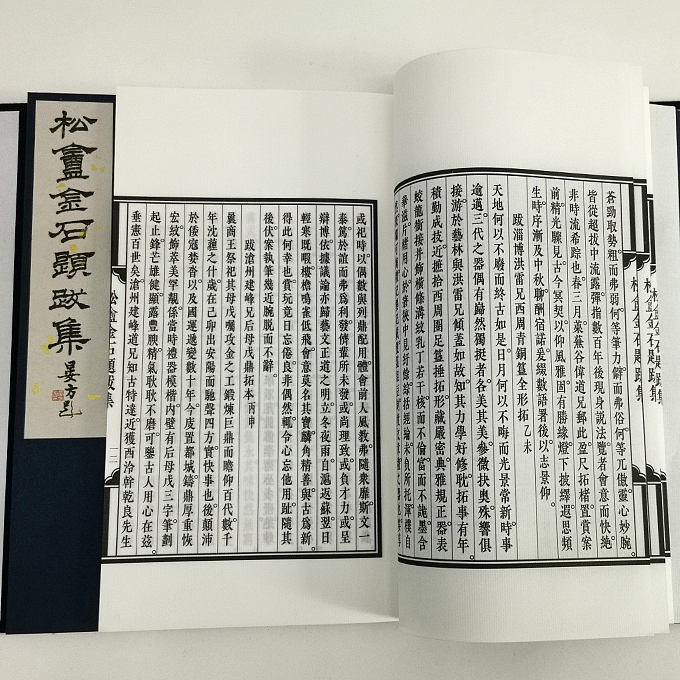 松盦金石題跋集
蒼勁取勢粗而弗弱何等筆力僻而弗俗何等兀傲靈心妙腕。
皆從超拔中流露彈指數百年後現身説法覽者會意而快絶
非時流希踪也春三月萊蕪谷偉道兄郵此盈尺拓楮置賞案
前精光驟見古今冥契以仰風雅固有勝緣燈下披繹遐思頻
生時序漸及中秋聊酬宿諾爰綴數語署後以志景仰。
跋淄博洪雷兄西周青銅簋全形拓 乙未
天地何以不廢而終古如是日月何以不晦而光景常新時事
逾邁三代之器偶有歸然獨挺者各美其美參微抉奧殊響俱
接游於藝林與洪雷兄傾蓋如故知其力學好修耽拓事有年
積勤成技近摭拾西周圈足簋捶拓形藏嚴密典雅規正器表
蛟龍銜接井飾橫條溝紋乳丁若干核而不倫當而不詭墨合
或祀時以偶數與列鼎配用體會前人風教弗隨衆靡斯文一
泰篤於誼而弗爲利發儕輩所未發或尚理致或負才力或呈
辯博依據議論亦歸藝文正道之明立冬夜雨自滬返蘇翌日
輕寒既暇樓檐鳴雀低飛會意莫名其實麟角精善與古爲新
得此何幸也賞玩竟日忘倦良非偶然輒令心忘他用趾隨其
後伏案執筆幾近腕脱而不辭。
跋滄州建峰兄后母戊鼎拓本 丙申
曩商王祭祀其母戊囑攻金之工鍛煉巨鼎而瞻仰百代數千
年沈薶之什歲在己卯出安陽而馳聲四方實快事也後顛沛
於倭寇婪沓以及國運遞變數十年今庋置都城鑄鼎厚重恢
宏紋飾萃美罕覯係當時禮器模楷内壁有后母戊三字筆劃
起止鋒芒雄健顯露豐腴精氣耿耿不磨可鑒古人用心在茲。
垂憲百世矣滄州建峰道兄知古特達近獲西泠幹乾良先生
松盦金石題跋集